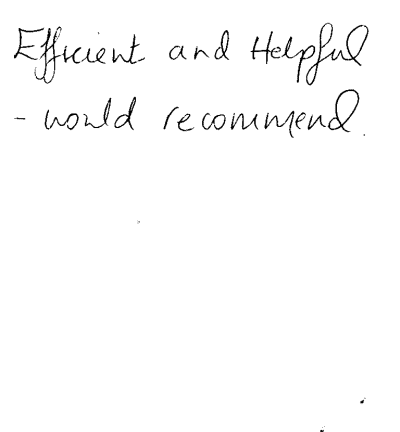 Efficient and Helpful
- would recommend.